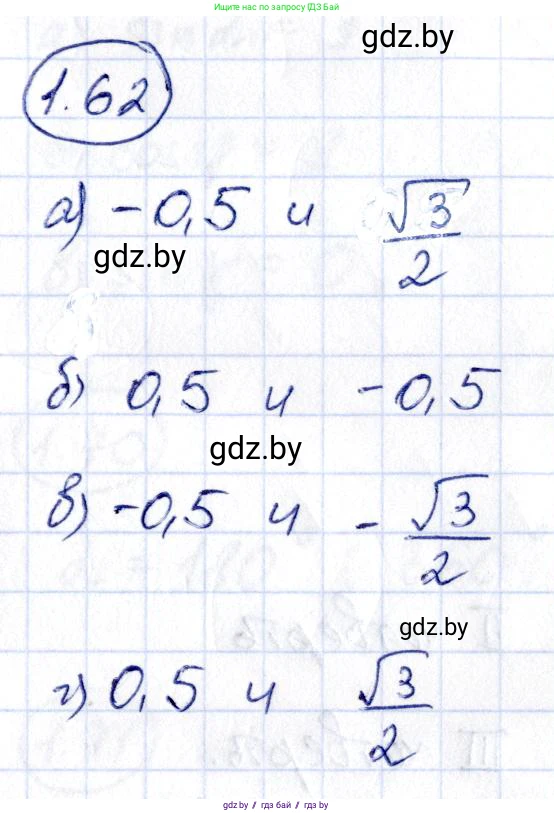 Ищите нас по запросу ГДЗ БАЙ
gdz.by
1.62
а) -0,5 и √3/2
gdz.by
б) 0,5 и -0,5
gdz.by
в) -0,5 и -√3/2
gdz.by
г) 0,5 и √3/2
gdz.by // гдз бай // gdz.by